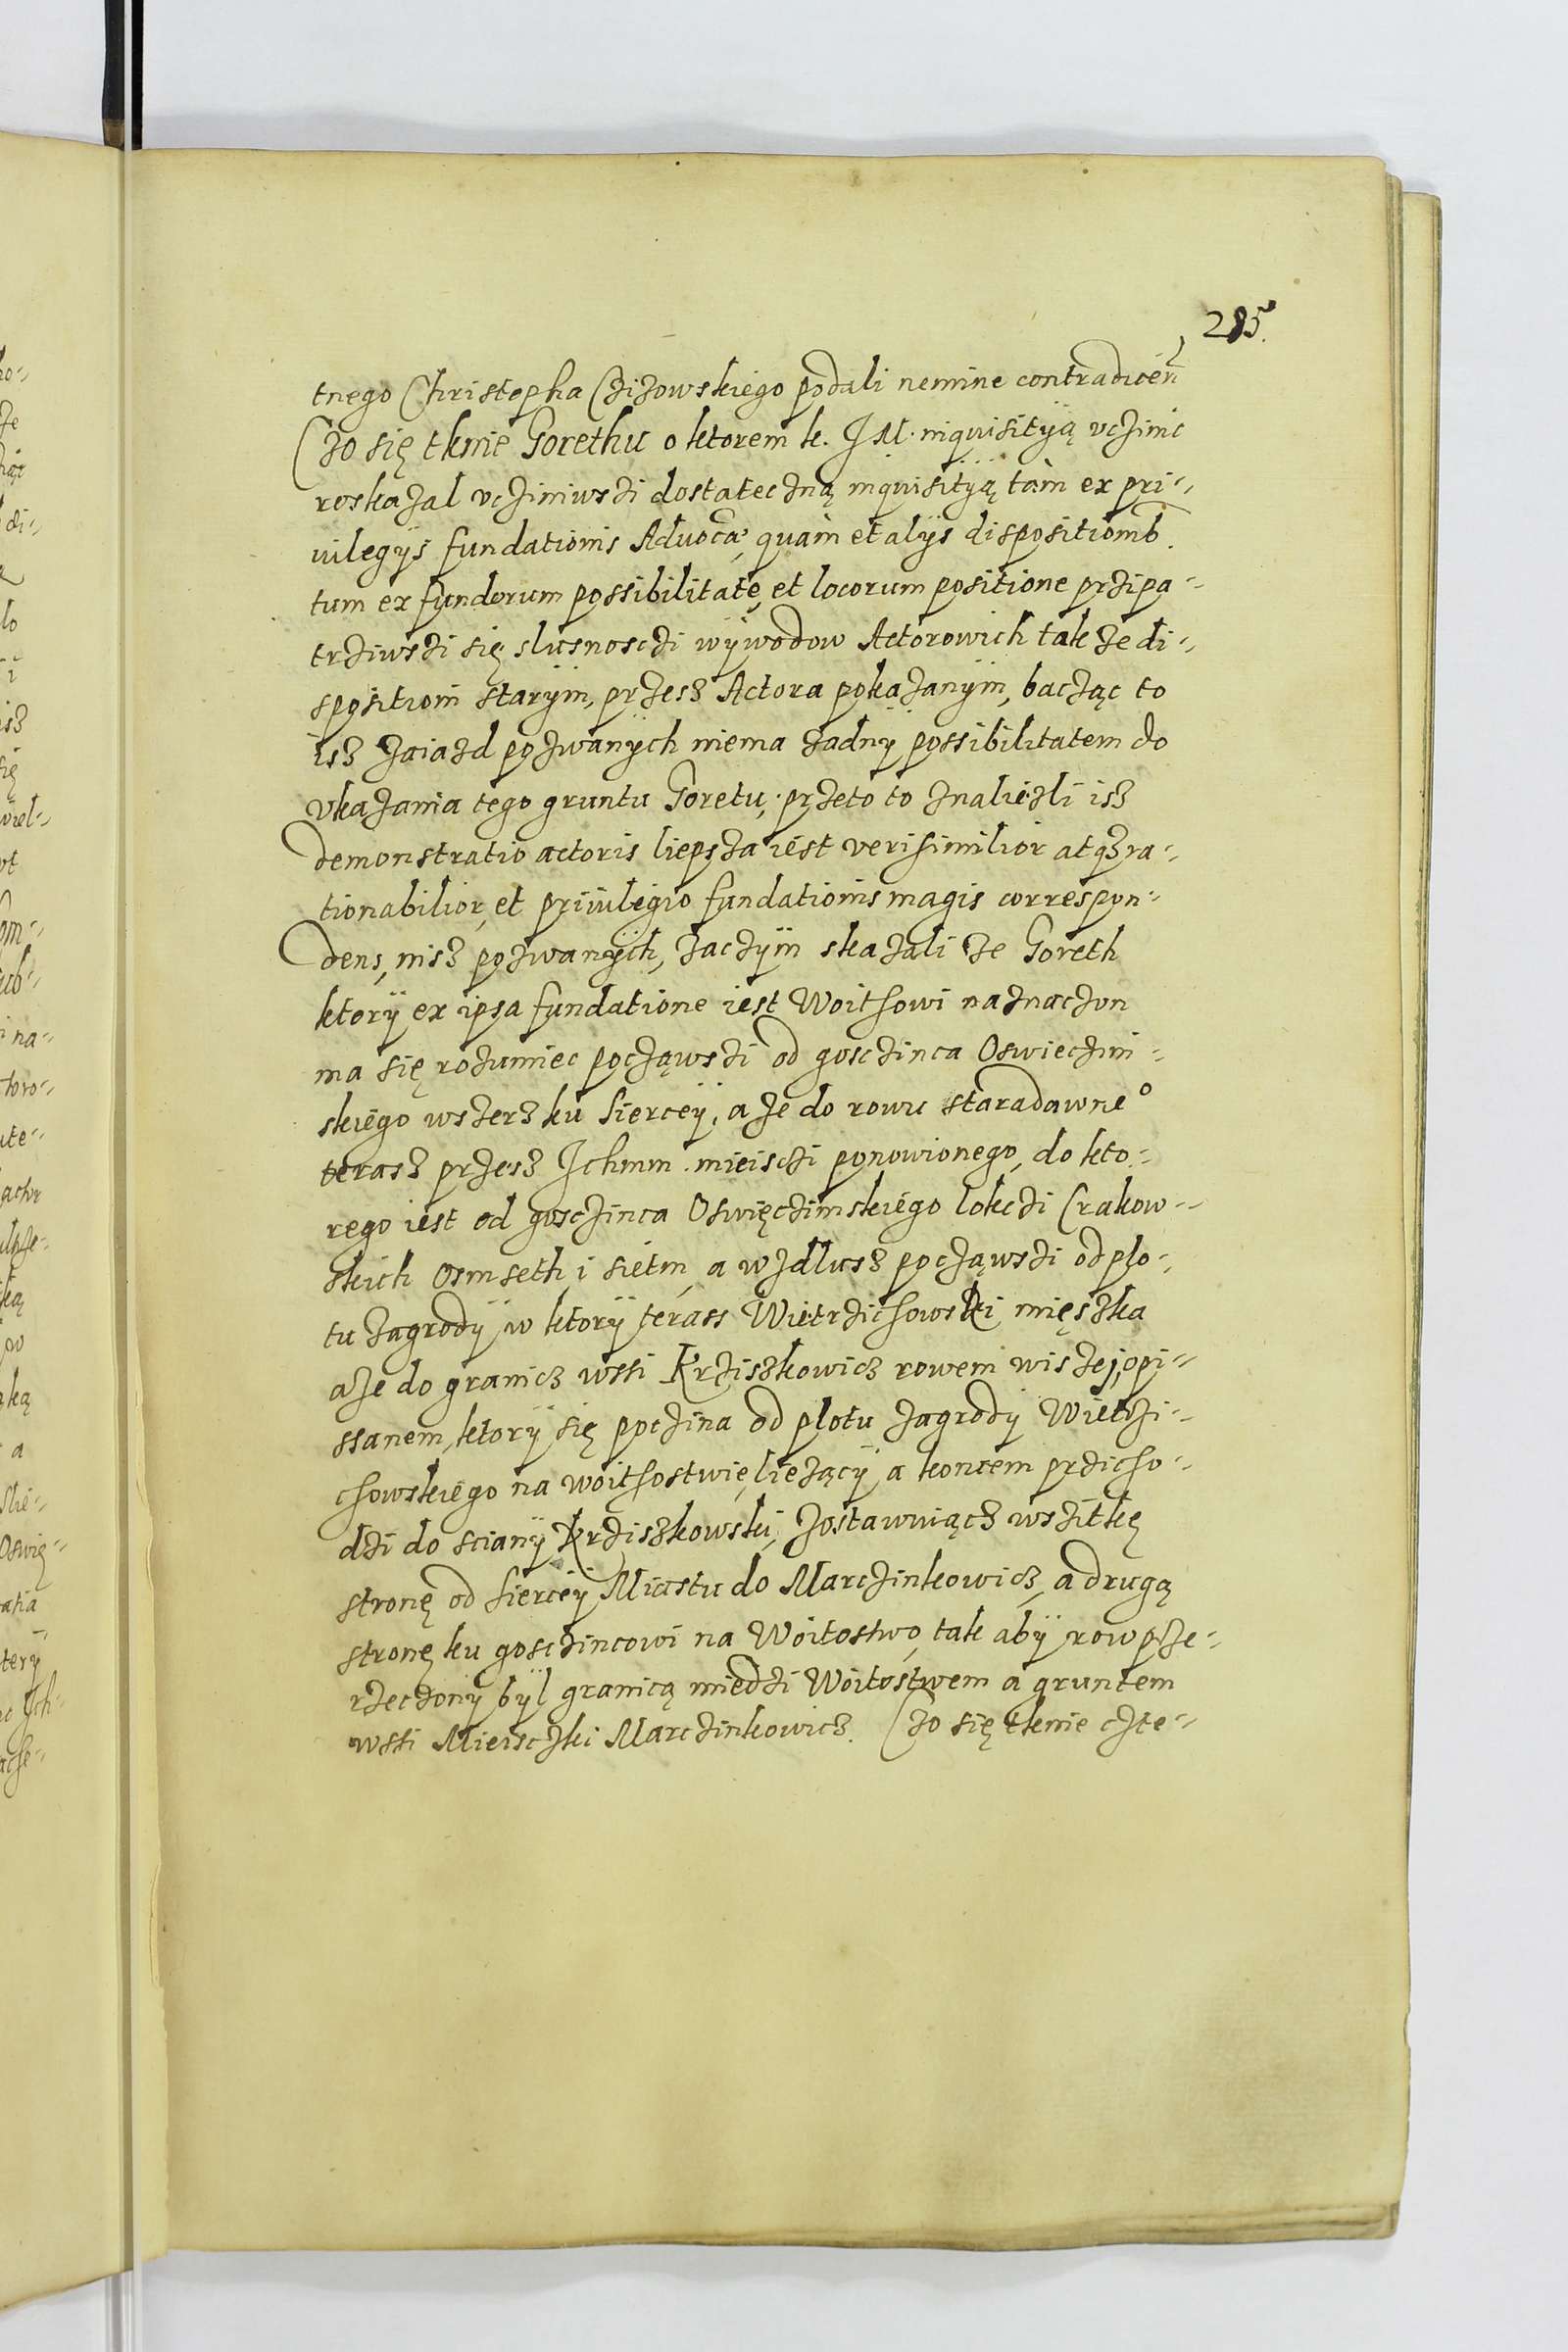 285.
tnego Christopha Czizowskiego podali nemine contradicen
Czo się tknie Gorethu o ktorem k. J M. inquisitÿą vczinic
roskazal vcziniwszi dostateczną inquisitÿą tam ex pri-
uilegÿs fundationis Aduoca, quam et alÿs dispositionib.
tum ex fundorum possibilitate, et locorum positione przipa-
trziwszi się slusnosczi wÿwodow Actorowich takze di-
spositiom starÿm, przesz Actora pokazanÿm, bacząc to
isz zaiazd pozwanÿch niema zadnÿ possibilitatem do
vkazania tego gruntu Goretu, przeto to znaliezli isz
demonstratio actoris liepsza iest verisimilior atqz ra-
tionabilior, et priuilegio fundationis magis correspon-
dens, nisz pozwanÿch, zaczÿm skazali ze Goreth
ktorÿ ex ipsa fundatione iest Woithowi naznaczon
ma się rozumiec począwszi od goscinca Oswieczim-
skiego wszersz ku Siercéÿ, a ze do rowu staradawneo
terasz przesz Ichmm. mieisczi ponowionego, do kto-
rego iest od gosczinca Oswięczimskiego lokczi Crakow-
skich Osmseth i sietm, a wzdlusz począwszi od plo-
tu zagrodÿ w ktorÿ terass Wietrzichowski mięszka
aze do granicz wssi Krziszkowicz rowem wiszej opi-
ssanem, ktorÿ się poczina od plotu zagrodÿ Wietrzi-
chowskiego na woithostwie liezącÿ a koncem przicho-
dzi do scianÿ Krziszkowski, zostawuiącz wszitkę
stronę od Siercéÿ Miastu do Marczinkowicz, a drugą
stronę ku gosczincowi na Woitostwo, tak abÿ row prze-
rzeczonÿ bÿl granicą miedzi Woitostwem a gruntem
wssi Mieisczki Marczinkowicz. Czo się tknie czte-